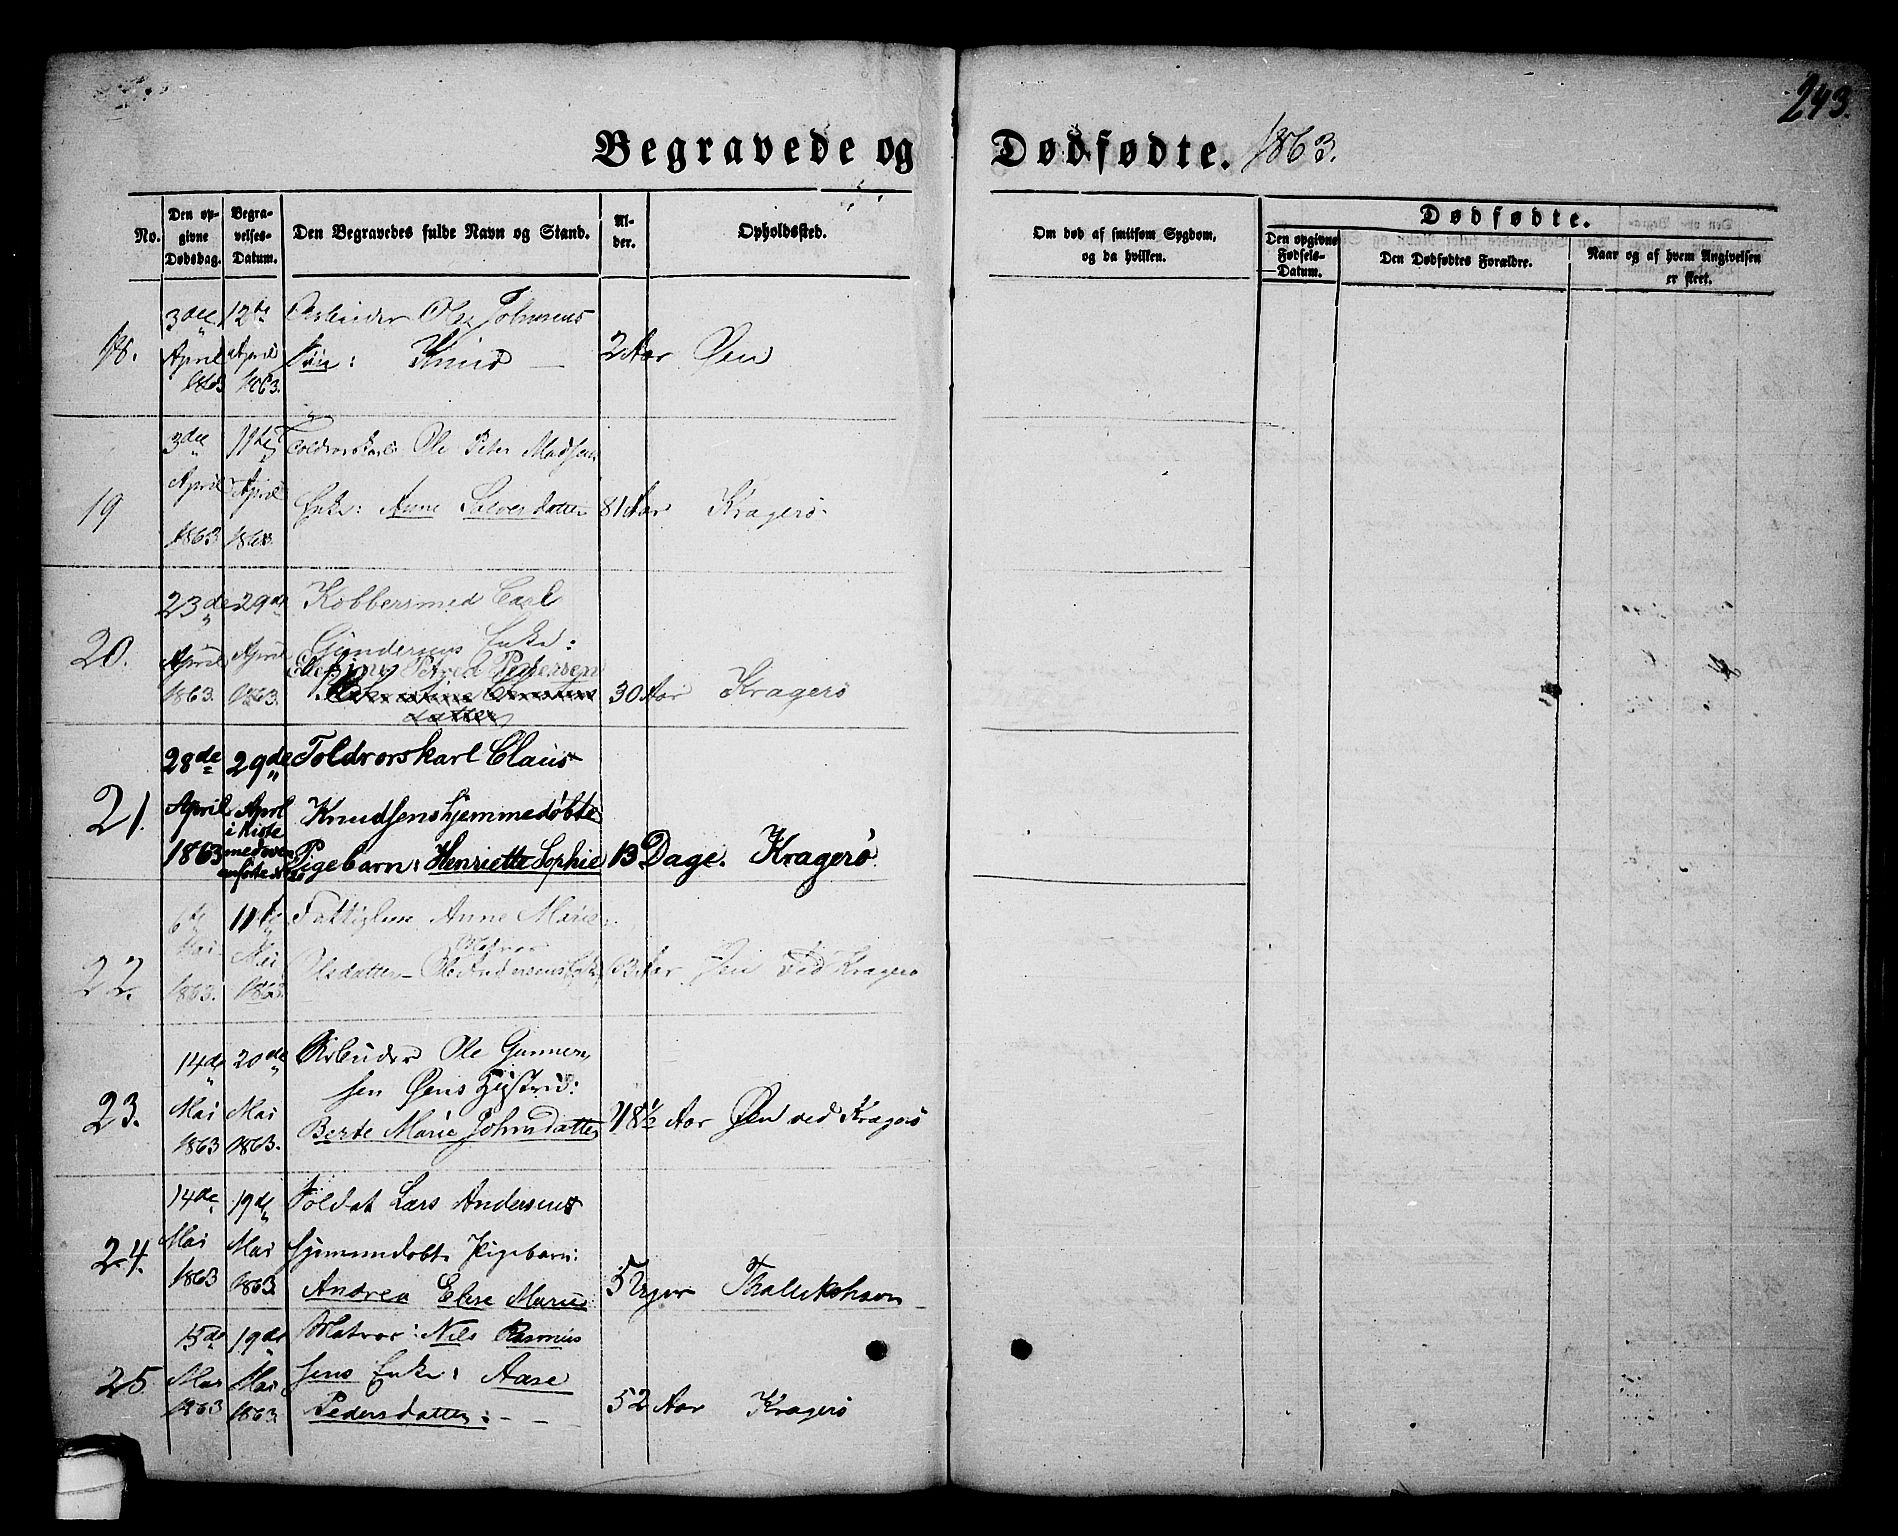 243.
Begravede og Dødfødte. 1863.
No.
Den op-
givne
Dødsdag.
Begra-
velses-
Datum.
Den Begravedes fulde Navn og Stand.
Al-
der.
Opholdssted.
Om død af smitsom Sygdom,
og da hvilken.
Dødfødte.
Den opgivne
Fødsels-
Datum.
Den Dødfødtes Forældre.
Naar og af hvem Angivelsen
er skeet.
18.
3die
April
1863
12te
April
1863.
Arbeider Ole Johnsens
Søn: Knud —
2 Aar
Øen
19
3die
April
1863
11te
April
1863.
Toldrorskarl Ole Peter Madsens
Enke: Anne Salvesdatter
81 Aar
Kragerø
20.
23de
April
1863.
29de
April
1863.
Kobbersmed Carl
Gundersens Enke:
Petrea Pedersen
datter
30 Aar
Kragerø
21.
28de
April
1863
29de
April
i Kiste
med oven
anførte
Toldrorskarl Claus
Knudsens hjemmedøbte
Pigebarn: Henriette Sophie
13 Dage.
Kragerø
22.
6te
Mai
1863.
11te
Mai
1863.
Fattiglem Anne Marie
Matros
Olsdatter – Ole Andersens Enke
Aar
Øen ved Kragerø
23.
14de
Mai
1863
20de
Mai
1863.
Arbeider Ole Gunner
sen Øens
Berte Marie Johnsdatter
48½ Aar
Øen ved Kragerø
24.
14de
Mai
1863
19de
Mai
1863.
Soldat Lars Andersens
hjemmedøbte Pigebarn:
Andrea Elise Marie
5 Uger
25
15de
Mai
1863
19de
Mai
1863.
Matros: Nils Rasmus
sens Enke: Aase
Pedersdatter: – –
52 Aar
Kragerø